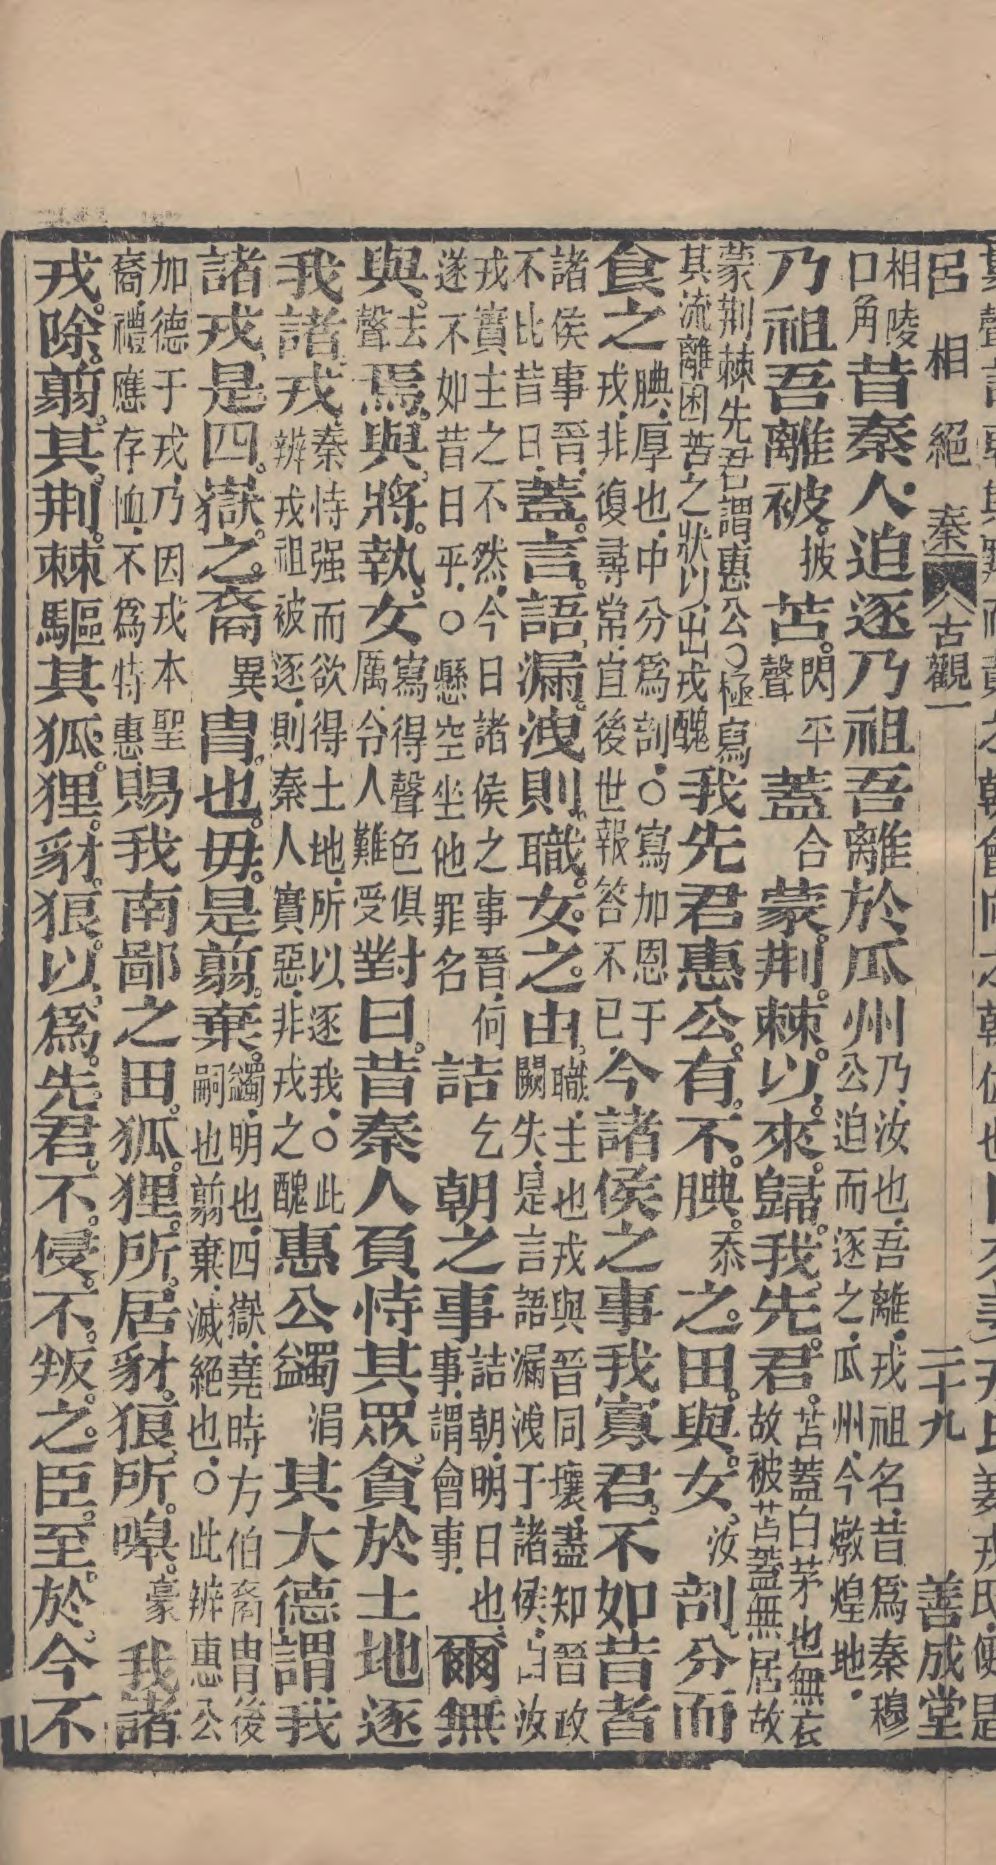 呂相絕秦 古觀一 二十九 善成堂
相陵口角昔秦人迫逐乃祖吾離於瓜州乃汝也吾離戎祖名昔爲秦穆公迫而逐之瓜州今燉煌地
乃祖吾離被披苫閃平聲蓋合蒙荆棘以來歸我先君苫蓋白茅也無衣故被苫蓋無居故
蒙荆棘先君謂惠公○極寫其流離困苦之狀以出戎醜我先君惠公有不腆忝之田與女汝剖分而
食之腆厚也中分爲剖○寫加恩于戎非復尋常宜後世報答不已今諸侯之事我寡君不如昔者
諸侯事晉不比昔日蓋言語漏洩則職女之由職主也戎與晉同壤盡知晉政闕失是言語漏洩于諸侯由汝
戎實主之不然今日諸侯之事晉何遂不如昔日乎○懸空坐他罪名詰乞朝之事詰朝明日也事謂會事爾無
與去聲焉與將執女寫得聲色俱厲令人難受對曰昔秦人負恃其眾貪於土地逐
我諸戎秦恃强而欲得土地所以逐我○此辨戎祖被逐則秦人實惡非戎之醜惠公蠲涓其大德謂我
諸戎是四嶽之裔異冑也毋是翦棄蠲明也四嶽堯時方伯裔冑後嗣也翦棄滅絕也○此辨惠公
加德于戎乃因戎本聖裔禮應存恤不爲特惠賜我南鄙之田狐狸所居豺狼所嘷豪我諸
戎除翦其荆棘驅其狐狸豺狼以爲先君不侵不叛之臣至於今不